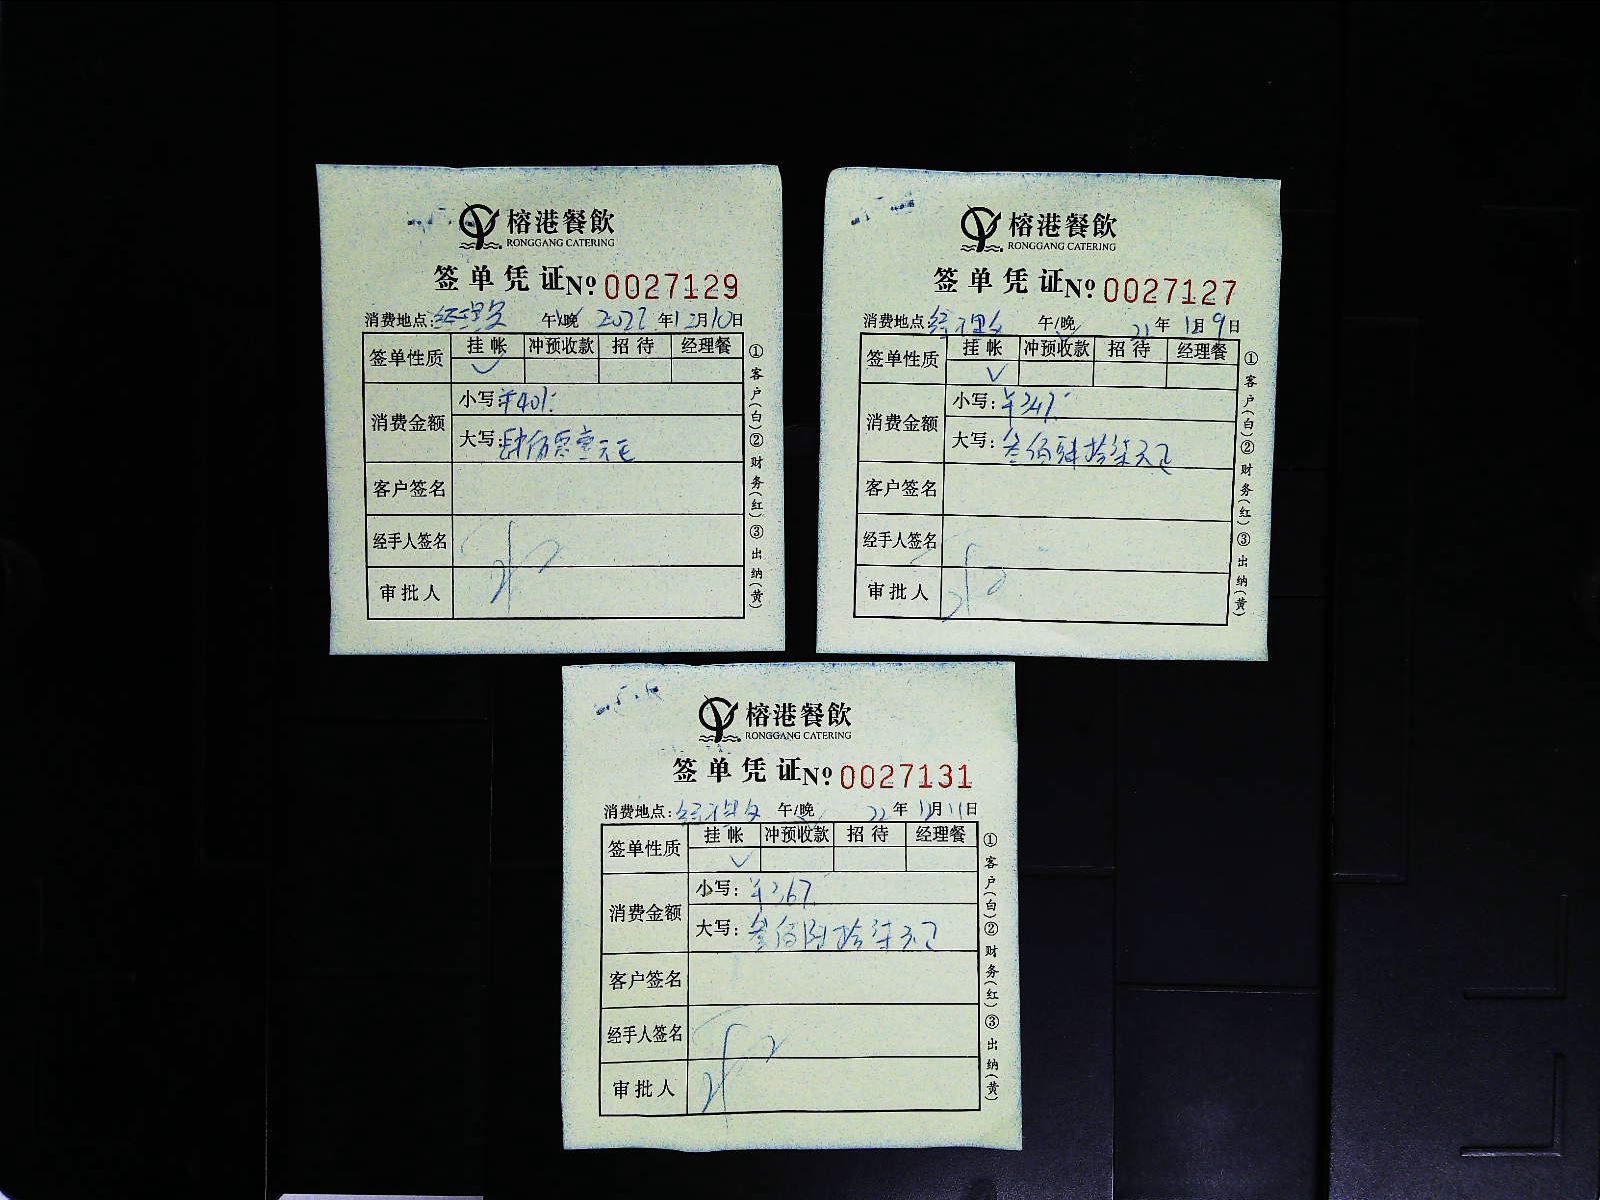 榕港餐飲
RONGGANG CATERING
签单凭证 No 0027129
消费地点: 午/晚 2022年12月10日
签单性质 挂帐 冲预收款 招待 经理餐
消费金额
小写:¥401.
大写:肆佰零壹元
客户签名
经手人签名
审批人
①客户(白)②财务(红)③出纳(黄)
榕港餐飲
RONGGANG CATERING
签单凭证 No 0027127
消费地点: 午/晚 年 月9日
签单性质 挂帐 冲预收款 招待 经理餐
消费金额
小写:¥347.
大写:叁佰肆拾柒元
客户签名
经手人签名
审批人
①客户(白)②财务(红)③出纳(黄)
榕港餐飲
RONGGANG CATERING
签单凭证 No 0027131
消费地点: 午/晚 22年12月11日
签单性质 挂帐 冲预收款 招待 经理餐
消费金额
小写:¥367.
大写:叁佰陆拾柒元
客户签名
经手人签名
审批人
①客户(白)②财务(红)③出纳(黄)